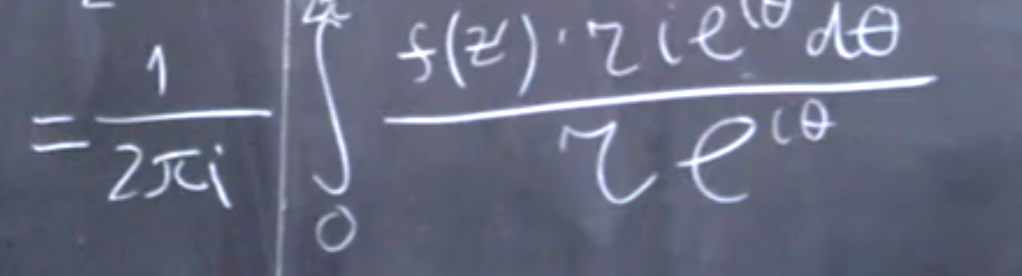 = \frac{1}{2\pi i} \int_0^{2\pi} \frac{f(z) \cdot r i e^{i\theta} d\theta}{r e^{i\theta}}